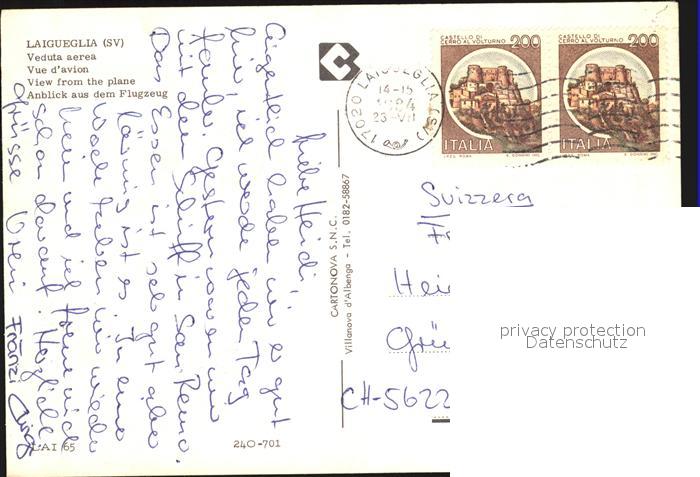 LAIGUEGLIA (SV)
Veduta aerea
Vue d'avion
View from the plane
Anblick aus dem Flugzeug
CASTELLO DI
CERRO AL VOLTURNO 200
ITALIA
CASTELLO DI
CERRO AL VOLTURNO 200
ITALIA
17020 LAIGUEGLIA (SV)
14-15
1984
23 VII
Liebe Heidi,
Eigentlich haben wir es gut
hier, ich werde jeden Tag
fauler. Gestern waren wir
mit dem Schiff in San Remo.
Das Essen ist sehr gut aber
lärmig ist es. In einer
Woche haben wir wieder
heim und ich freue mich
schon darauf. Herzliche
Grüsse Vreni Fränzi
CARTONOVA S.N.C.
Villanova d'Albenga - Tel. 0182-58867
Svizzera
Hei
Grü
CH-5622
privacy protection
Datenschutz
LAI 65
240-701